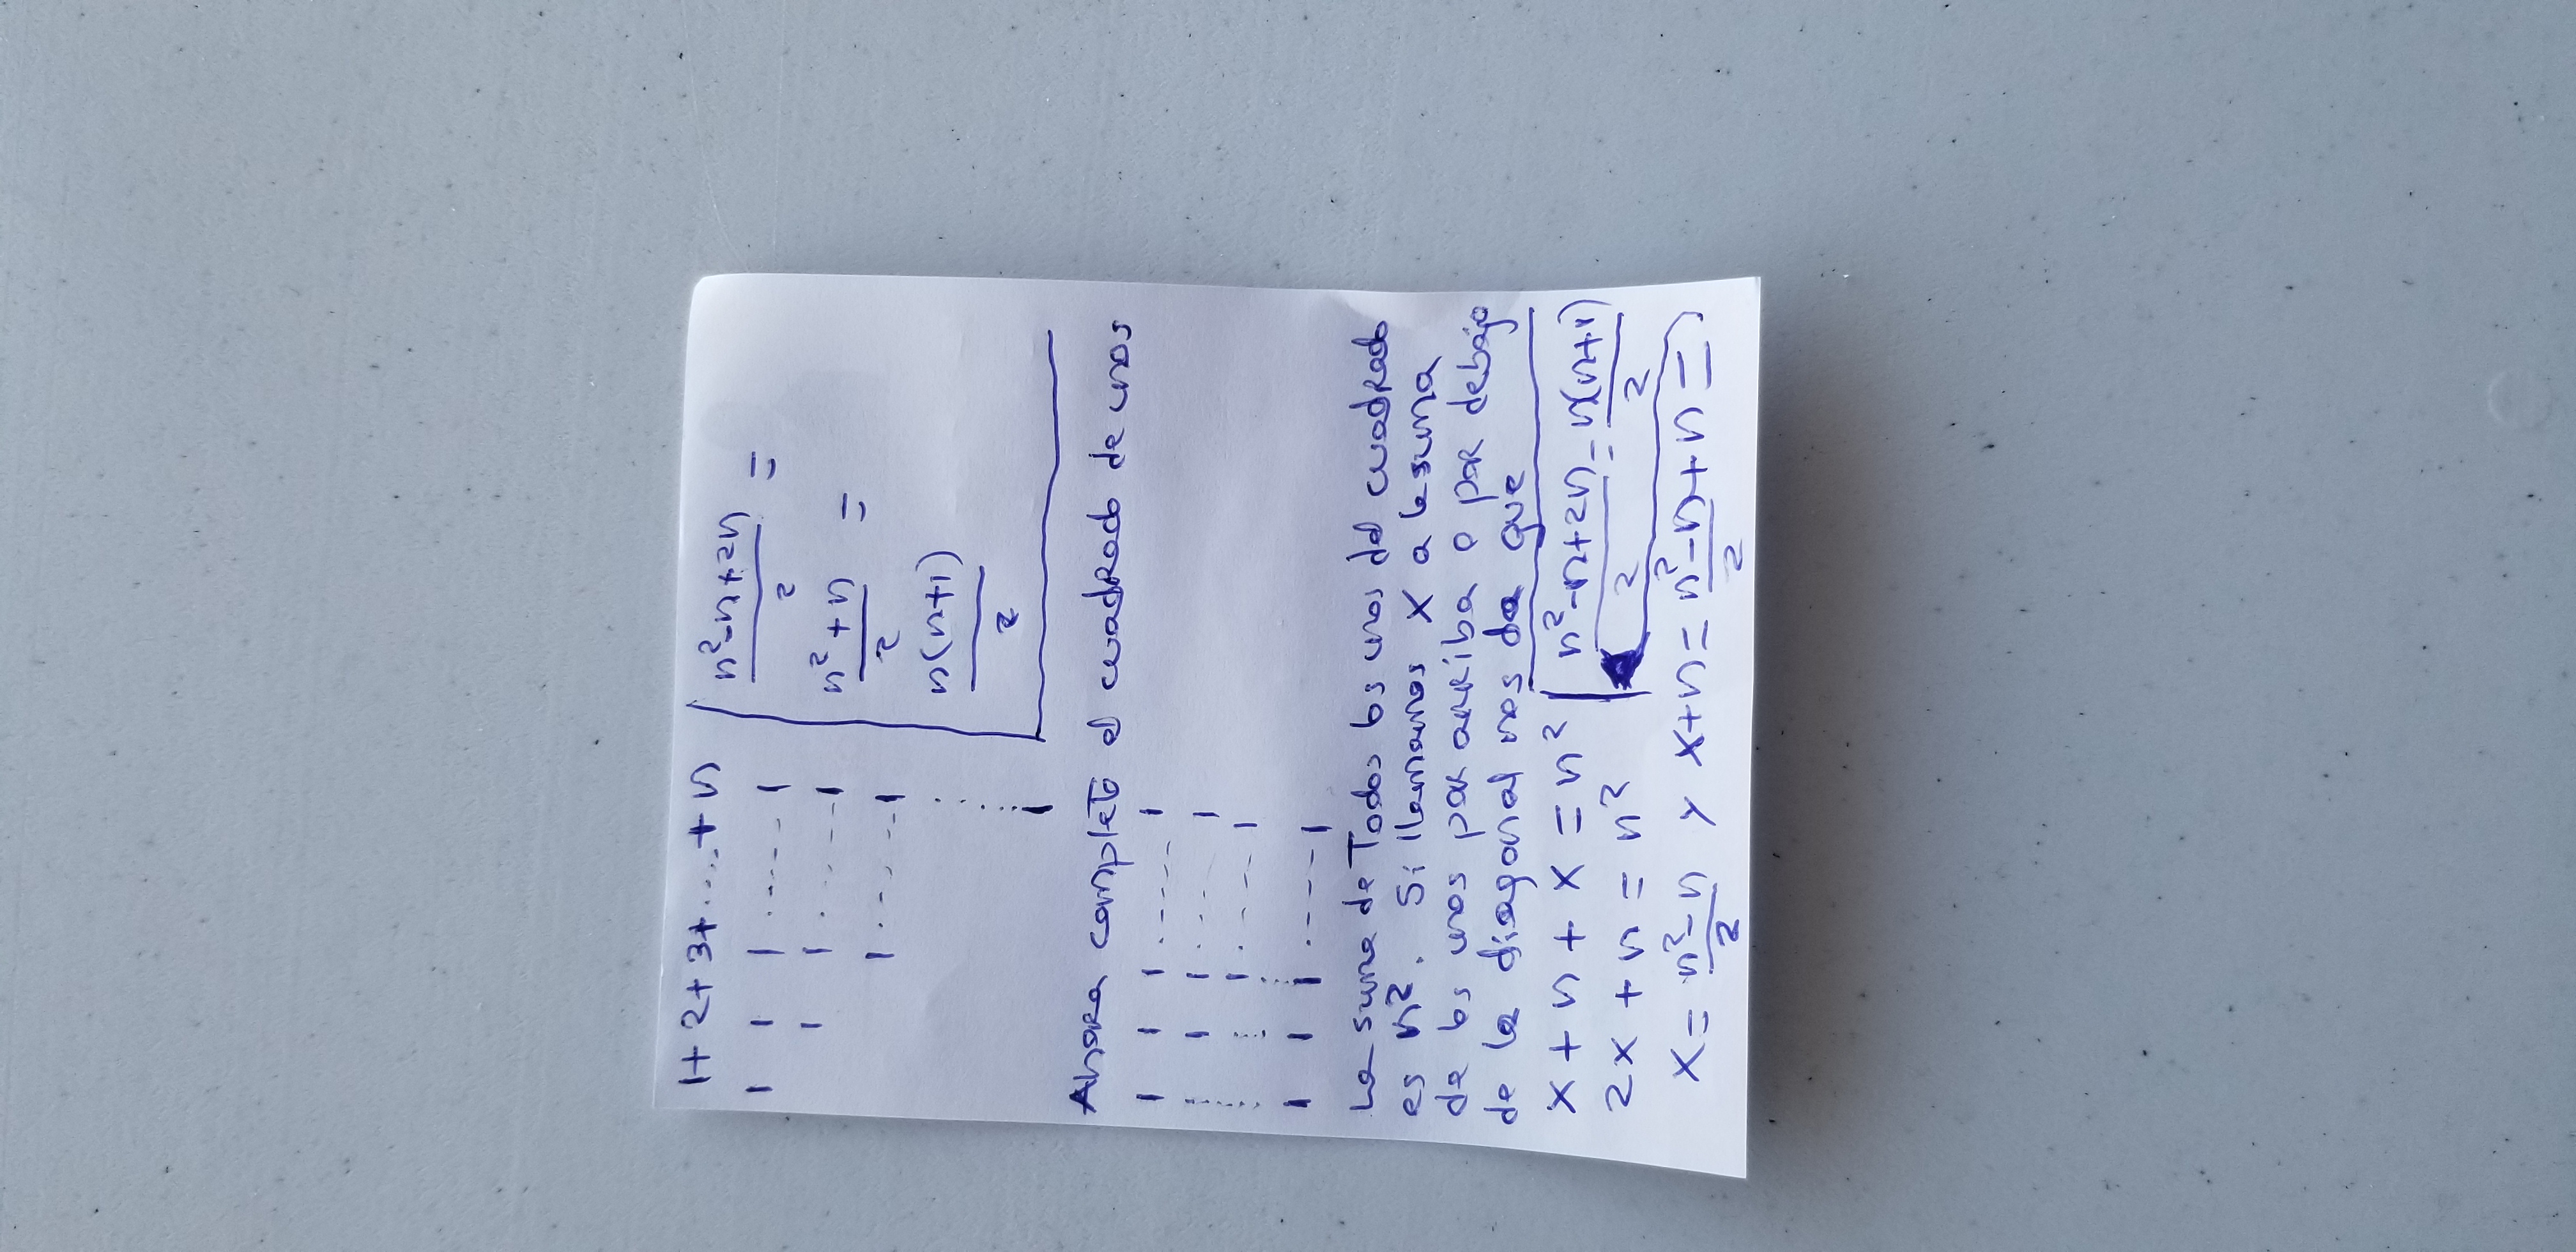 1+ 2+ 3+.....+ n
1 1 1 ...... 1
1 1 ...... 1
1 ...... 1
1
n²-n+2n / 2 =
n² + n / 2 =
n(n+1) / 2
Ahora completo el cuadrado de unos
1 1 1 ...... 1
1 1 1 ...... 1
1 ...... 1
1 1 1 ...... 1
La suma de Todos los unos del cuadrado
es n². Si llamamos x a la suma
de los unos por arriba o por debajo
de la diagonal nos da que
x + n + x = n²
2x + n = n²
n²-n+2n / 2 = n(n+1) / 2
x = n²-n / 2 y x+n = n²-n / 2 + n =